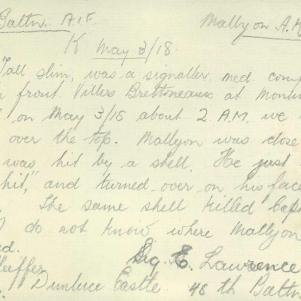 Battn. A.I.F. Mallyon A.
K May 3/18.
"Tall slim, was a signaller, med comp
front Villers Brettoneaux at Monu
on May 3/18 about 2 A.M. we
over the top. Mallyon was close
was hit by a shell. He just
hit", and turned over on his face
The same shell killed Cap
I do not know where Mallyon
Sig. E. Lawrence
Dunluce Castle. 48th Battn